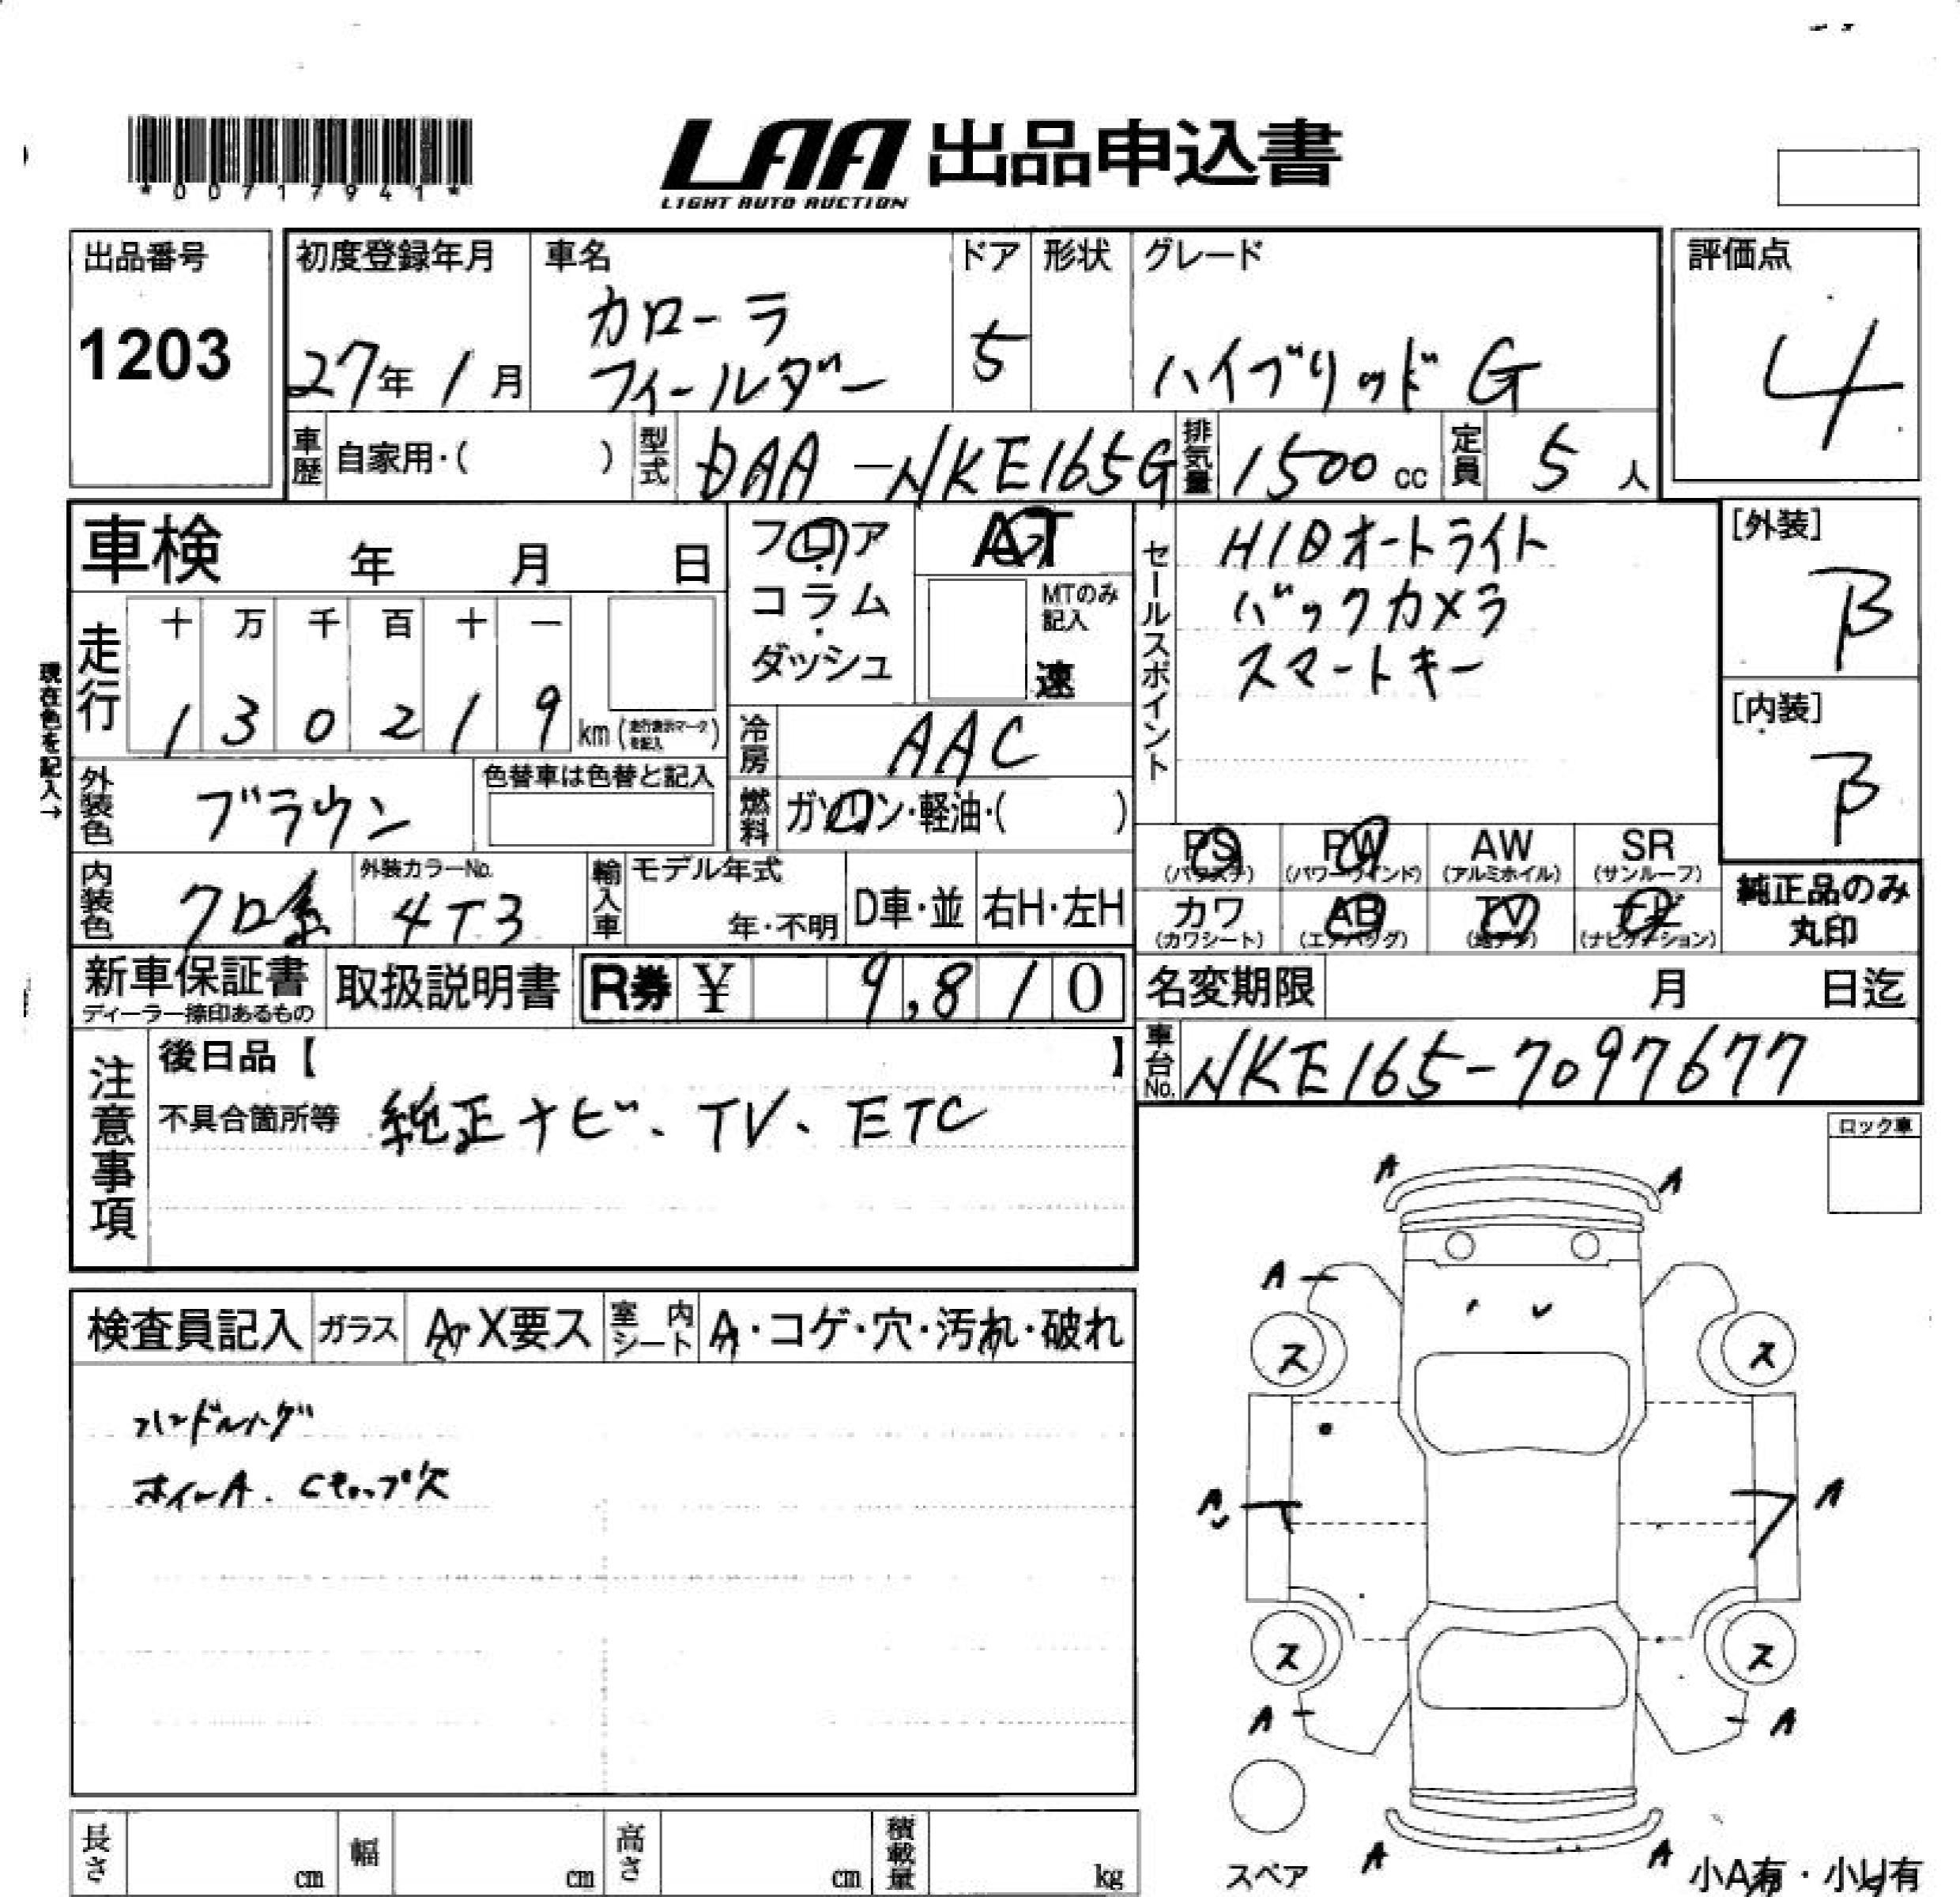 *00717941*
LAA 出品申込書
LIGHT AUTO AUCTION
出品番号
1203
初度登録年月
27年 1月
車名
カローラ
フィールダー
ドア
5
形状
グレード
ハイブリッド G
評価点
4
車歴
自家用・( )
型式
DAA-NKE165G
排気量
1500 cc
定員
5 人
車検 年 月 日
フロア
コラム
ダッシュ
AT
MTのみ
記入
速
セールスポイント
HIDオートライト
バックカメラ
スマートキー
[外装]
B
[内装]
B
現在色を記入→
走行
十 万 千 百 十 一
1 3 0 2 1 9 km (走行表示マークを記入)
冷房
AAC
外装色
ブラウン
色替車は色替と記入
燃料
ガソリン・軽油・( )
PS
(パワステ)
PW
(パワーウインド)
AW
(アルミホイル)
SR
(サンルーフ)
カワ
(カワシート)
AB
(エアバッグ)
TV
(地デジ)
ナビ
(ナビゲーション)
純正品のみ
丸印
内装色
クロ系
外装カラーNo.
4T3
輸入車
モデル年式
年・不明
D車・並
右H・左H
新車保証書
ディーラー捺印あるもの
取扱説明書
R券 ¥ 9,810
名変期限 月 日迄
車台No.
NKE165-7097677
注意事項
後日品【 】
不具合箇所等 純正ナビ、TV、ETC
ロック車
検査員記入
ガラス
A・X要ス
室内シート
A・コゲ・穴・汚れ・破れ
ハンドルハゲ
ホイルA. Cキャップ欠
A A
A
ス ス
A A
ス ス
A A
A A
スペア
小A有・小U有
長さ cm
幅 cm
高さ cm
積載量 kg